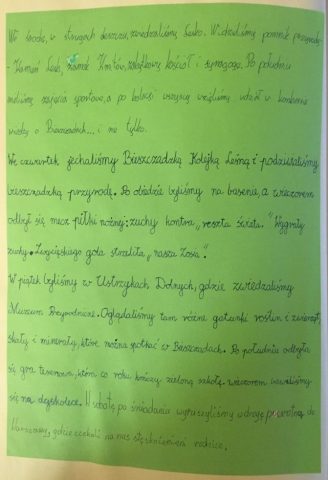 We środę, w strugach deszczu, zwiedzaliśmy Lesko. Widzieliśmy pomnik przyrody
- Kamień Leski, zamek Kmitów, zabytkowy kościół i synagogę. Po południu
mieliśmy zajęcia sportowe, a po kolacji wszyscy wzięliśmy udział w konkursie
wiedzy o Bieszczadach... i nie tylko.
We czwartek jechaliśmy Bieszczadzką Kolejką Leśną i podziwialiśmy
bieszczadzką przyrodę. Po obiedzie byliśmy na basenie, a wieczorem
odbył się mecz piłki nożnej: zuchy kontra „reszta świata." Wygrały
zuchy. Zwycięskiego gola strzeliła „nasza Zosia."
W piątek byliśmy w Ustrzykach Dolnych, gdzie zwiedzaliśmy
Muzeum Przyrodnicze. Oglądaliśmy tam różne gatunki roślin i zwierząt,
skały i minerały, które można spotkać w Bieszczadach. Po południu odbyła
się gra terenowa, która co roku kończy zieloną szkołę. Wieczorem
się na dyskotece. W sobotę po śniadaniu wyruszyliśmy w drogę powrotną do
Warszawy, gdzie czekali na nas stęsknieni rodzice.